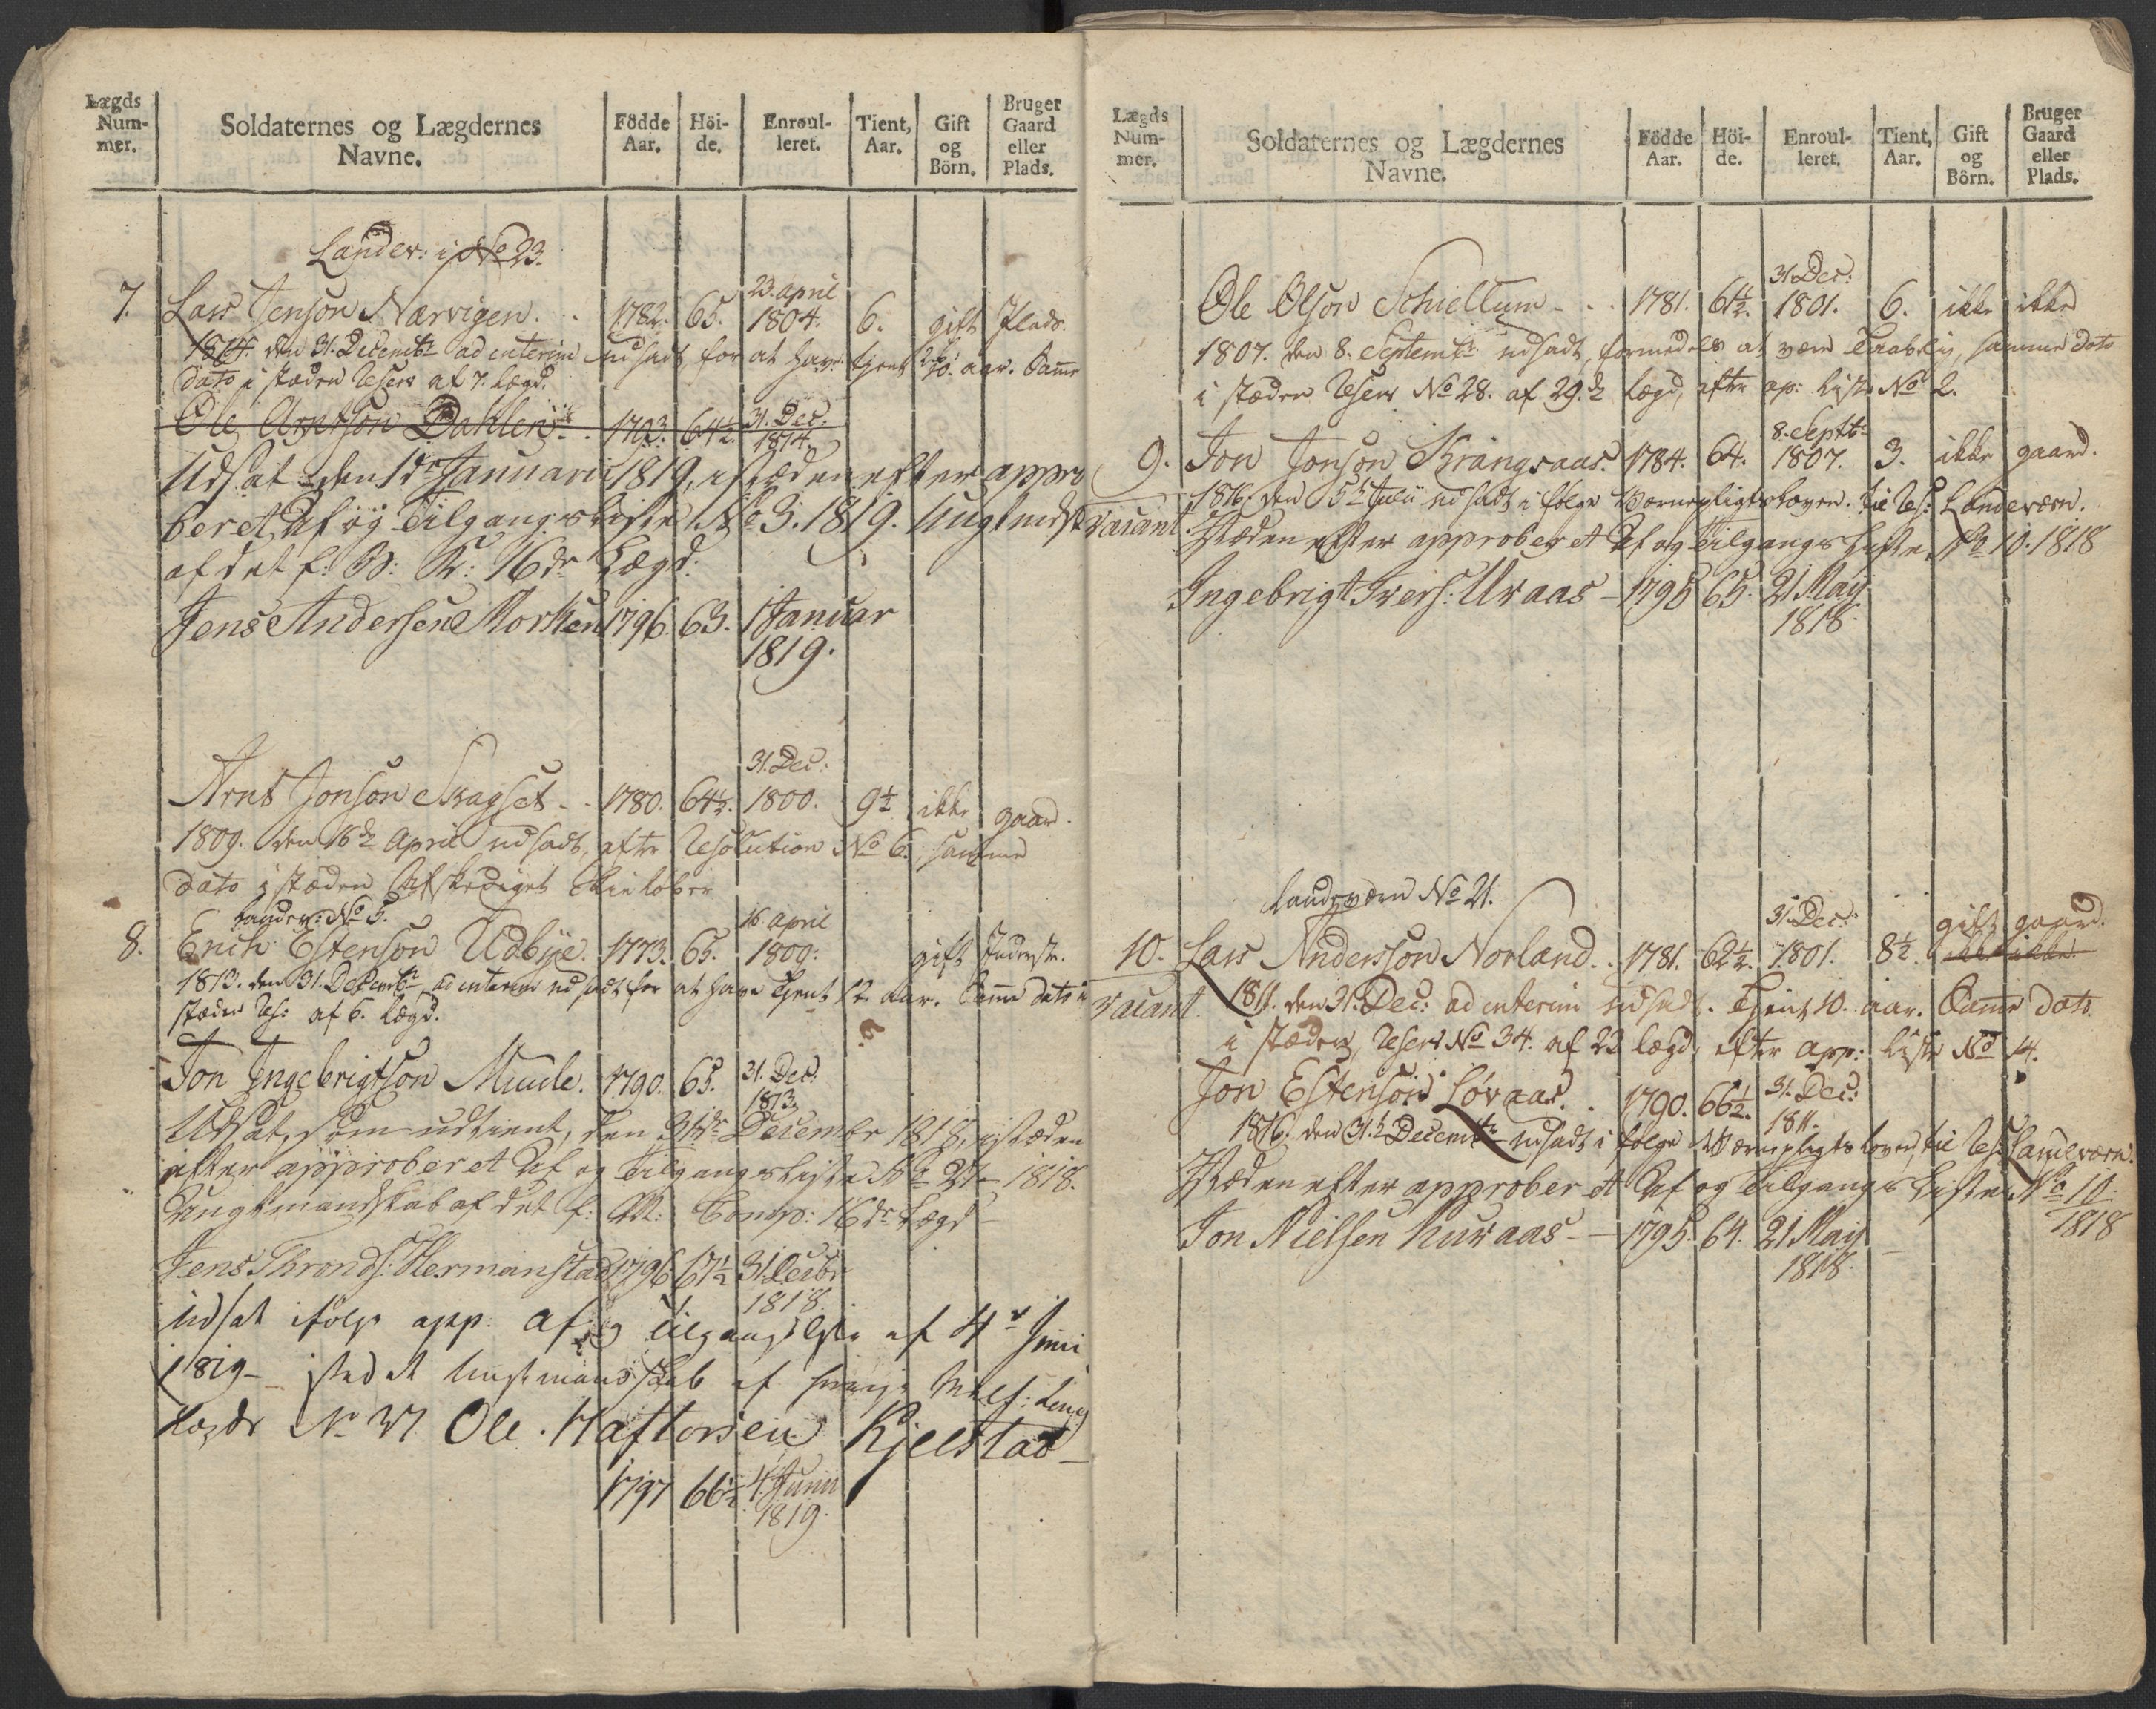 Lægds Num- mer.
Soldaternes og Lægdernes Navne.
Födde Aar.
Höi- de.
Enroul- leret.
Tient, Aar.
Gift og Börn.
Bruger Gaard eller Plads.
Landev: i No 23.
7. Lars Jensøn Narvigen. 1782. 65. 23. april 1804. 6. gift Plads.
1814. den 31. Decembr ad interim udsadt for at have tjent 10. aar. Samme
dato i stæden Reserv af 7. Lægd.
Ole Arntsøn Dahlen 1793. 64½ 31. Dec: 1814.
Udsat den 1de Januari 1819, istæden efter appro
beret Af og Tilgangs Liste No 3. 1819. Ungtmdsk
af det f: W: K: 16de Lægd:
Jens Andersen Morken 1796. 63. 1 Januar 1819.
Arnt Jonsøn Skagset 1780. 64½. 31. Dec: 1800. 9½ ikke gaard.
1809. den 16de April udsadt, efter Resolution No 6. samme
dato i stæden Afskediget Skieløber
Landev: No 5.
8. Erich Estensøn Udbÿe. 1773. 65. 16 april 1809. gift Inderst.
1813. den 31. Decembr ad interim udsadt for at have tjent 12. Aar. Samme dato i
stæden Res: af 6. Lægd.
Jon Ingebrigtsøn Muule. 1790. 65. 31. Dec: 1813.
Udsat, som udtient, den 31de Decembr 1818, istæden
efter approberet Af og Tilgangs Liste No 27 1818.
Ungtmandskab af det f: Comp: 16de Lægd
Jens Thronds: Hermanstad 1796 67½ 31 Decbr 1818.
Udsat ifølge app: Af og Tilgangsliste af 4de Juni
1819 isted et Ungtmandskab af
Lægds No 37 Ole Haftorsen Kjelstad
1797 66½ 4 Junii 1819.
Lægds Num- mer.
Soldaternes og Lægdernes Navne.
Födde Aar.
Höi- de.
Enroul- leret.
Tient, Aar.
Gift og Börn.
Bruger Gaard eller Plads.
Ole Olsøn Schiellum 1781. 61½. 31 Dec: 1801. 6. ikke ikke
1807. den 8. Septembr udsadt, formedels at være samme dato
i stæden Reserv No 28. af 29de Lægd, efter ap: Liste No 2.
9. Jon Jonsøn Krangsaas. 1784. 64. 8. Septbr 1807. 3. ikke gaard.
1816. den 5te Julii udsadt i følge Værnepligtsloven til Res: Landeværn.
Vacant. Istæden efter approberet Af og Tilgangs Liste No 10. 1818
Ingebrigt Ivers: Uvaas 1795 65. 21 Maij 1818.
Landeværn No 21.
10. Lars Anderssøn Norland. 1781. 62½. 31. Dec: 1801. 8½. gift gaard.
Vacant. 1811. den 31. Dec: ad interim udsadt. Tjent 10. aar. Samme dato
i stæden, Reserv No 34. af 23 Lægd, efter app: Liste No 14.
Jon Estensøn Løvaas. 1790. 66½. 31. Dec: 1811.
1816. den 31te Decembr udsadt i følge Værnepligtsloven, til Res: Landeværn.
Istæden efter approberet Af og Tilgangs Liste No 10. 1818
Jon Nielsen Kuraas 1795. 64. 21 Maij 1818.